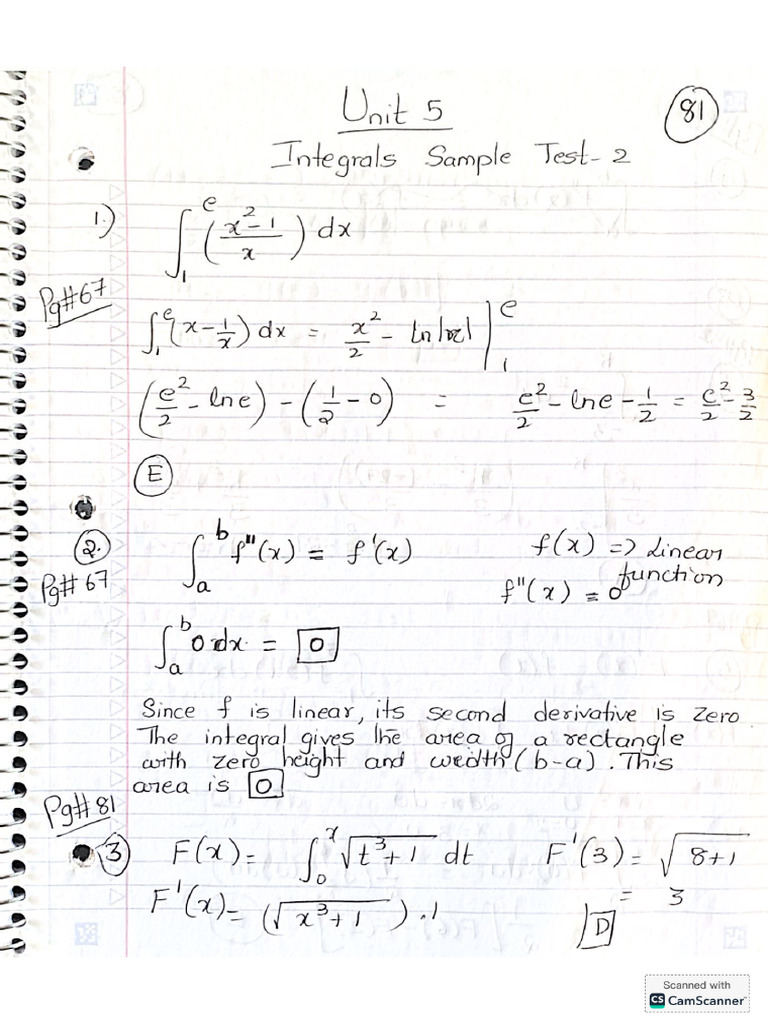 Unit 5
81
Integrals Sample Test-2
1.) ∫₁^e ((x²-1)/x) dx
Pg#67
∫₁^e (x - 1/x) dx = x²/2 - ln|x| |₁^e
(e²/2 - ln e) - (1/2 - 0) = e²/2 - ln e - 1/2 = e²/2 - 3/2
E
2. ∫ₐ^b f"(x) = f'(x) f(x) => Linear function
Pg# 67 f"(x) = 0
∫ₐ^b 0 dx = 0
Since f is linear, its second derivative is zero.
The integral gives the area of a rectangle
with zero height and width (b-a). This
area is 0
Pg# 81
3 F(x) = ∫₀^x √(t³+1) dt F'(3) = √(8+1)
F'(x) = (√(x³+1)) . 1 = 3
D
Scanned with
CS CamScanner